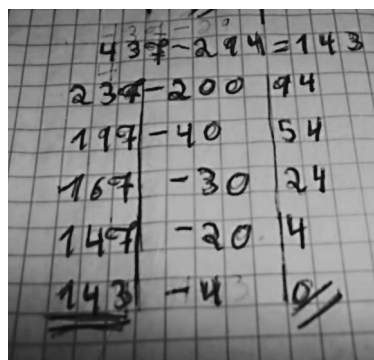 437-294=143
237-200 94
197-40 54
167-30 24
147-20 4
143-4 0